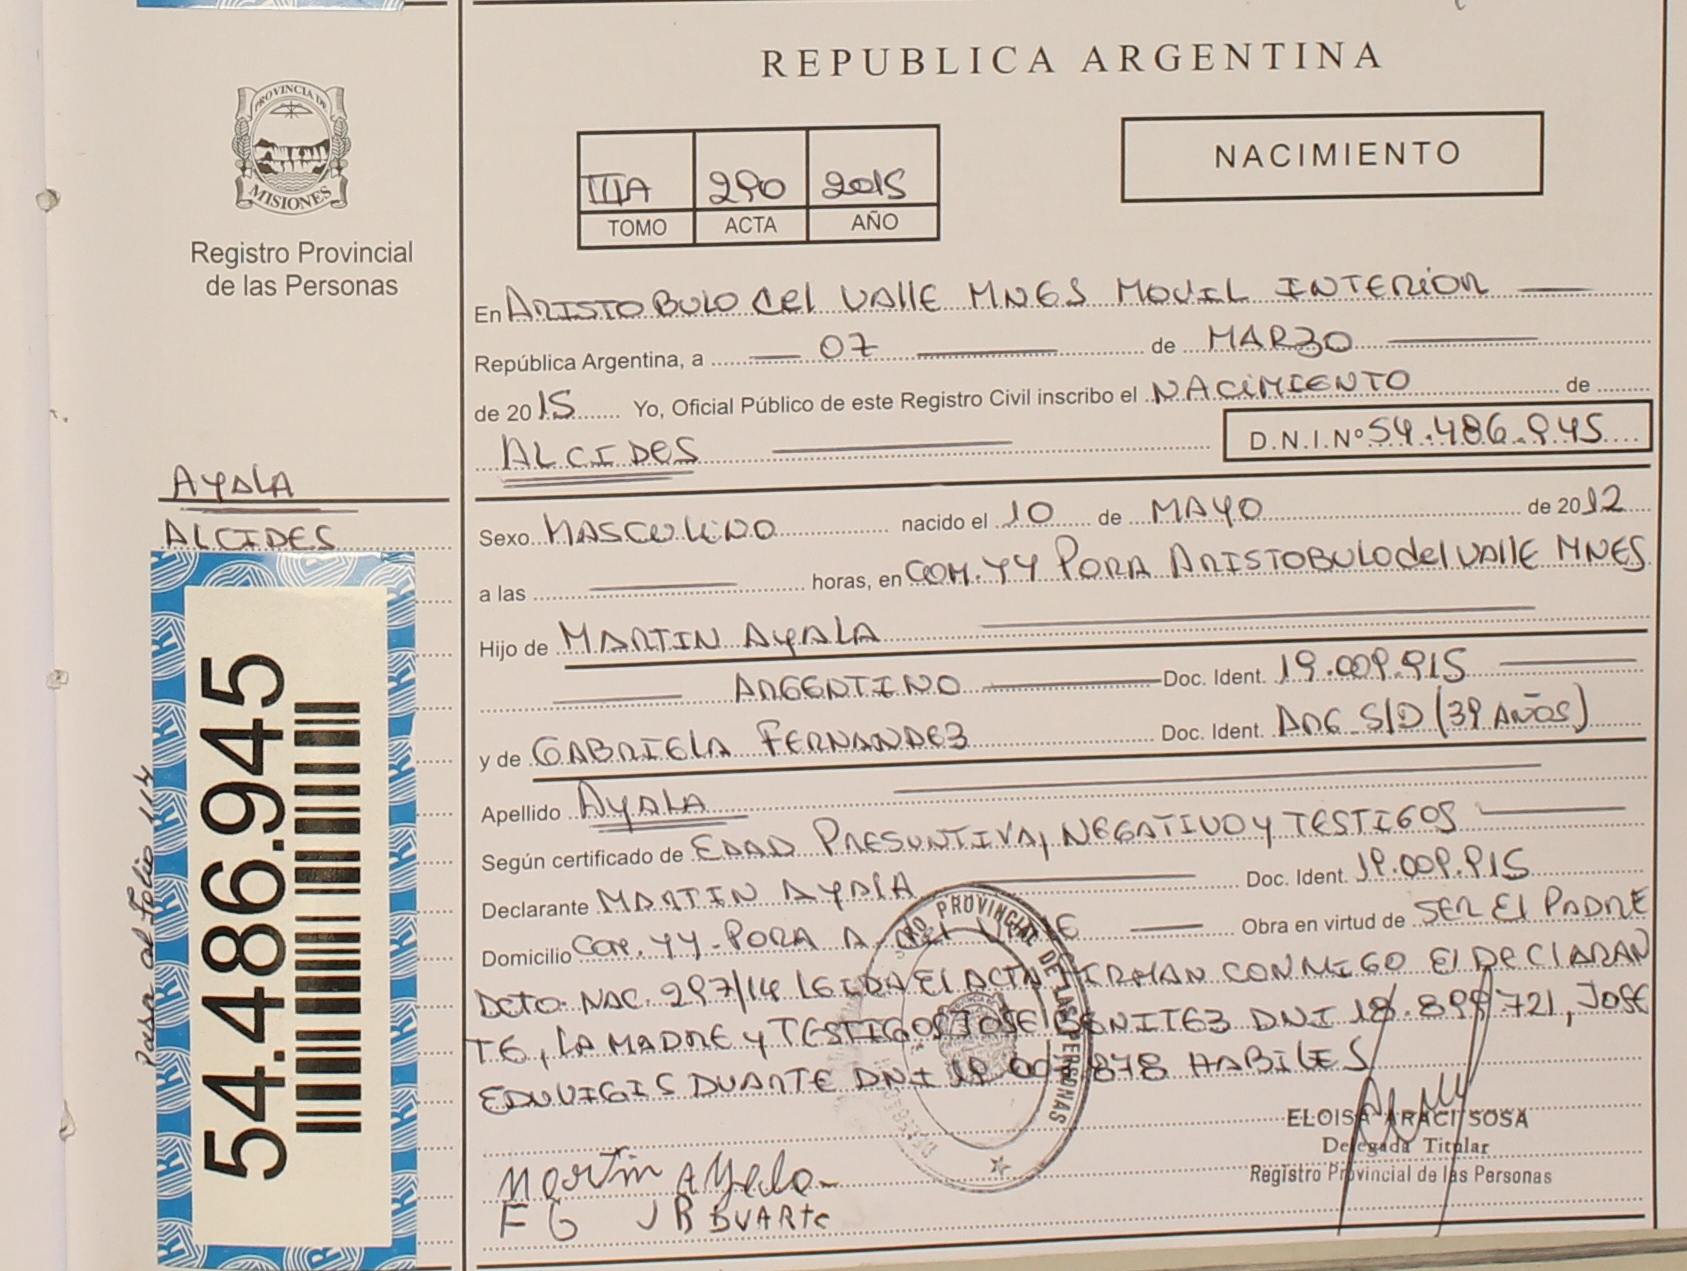 REPUBLICA ARGENTINA
PROVINCIA DE
MISIONES
Registro Provincial
de las Personas
NACIMIENTO
IIIA 290 2015
TOMO ACTA AÑO
En ARISTOBULO del VALLE MNES MOVIL INTERIOR
República Argentina, a 07 de MARZO
de 2015 Yo, Oficial Público de este Registro Civil inscribo el NACIMIENTO de
ALCIDES D.N.I.Nº 54.486.945
AYALA
ALCIDES
Sexo MASCULINO nacido el 10 de MAYO de 2012
a las horas, en COM. YY PORA ARISTOBULO del VALLE MNES
Hijo de MARTIN AYALA
ARGENTINO Doc. Ident. 19.009.915
y de GABRIELA FERNANDEZ Doc. Ident. ARG S/D (39 AÑOS)
Apellido AYALA
Según certificado de EDAD PRESUNTIVA, NEGATIVO y TESTIGOS
Declarante MARTIN AYALA Doc. Ident. 19.009.915
Domicilio COM. YY-PORA A. del VALLE Obra en virtud de SER El PADRE
DCTO. NAC. 297/14 LEIDA El ACTA FIRMAN CONMIGO El DECLARAN
TE, LA MADRE y TESTIGOS JOSE BENITEZ DNI 18.899.721, JOSE
EDUVIGIS DUARTE DNI 19.007.878 HABILES
54.486.945
Pasa al Folio 114
REGISTRO PROVINCIAL DE LAS PERSONAS
Martin Ayala
F G J B DUARTE
ELOISA ARACI SOSA
Delegada Titular
Registro Provincial de las Personas